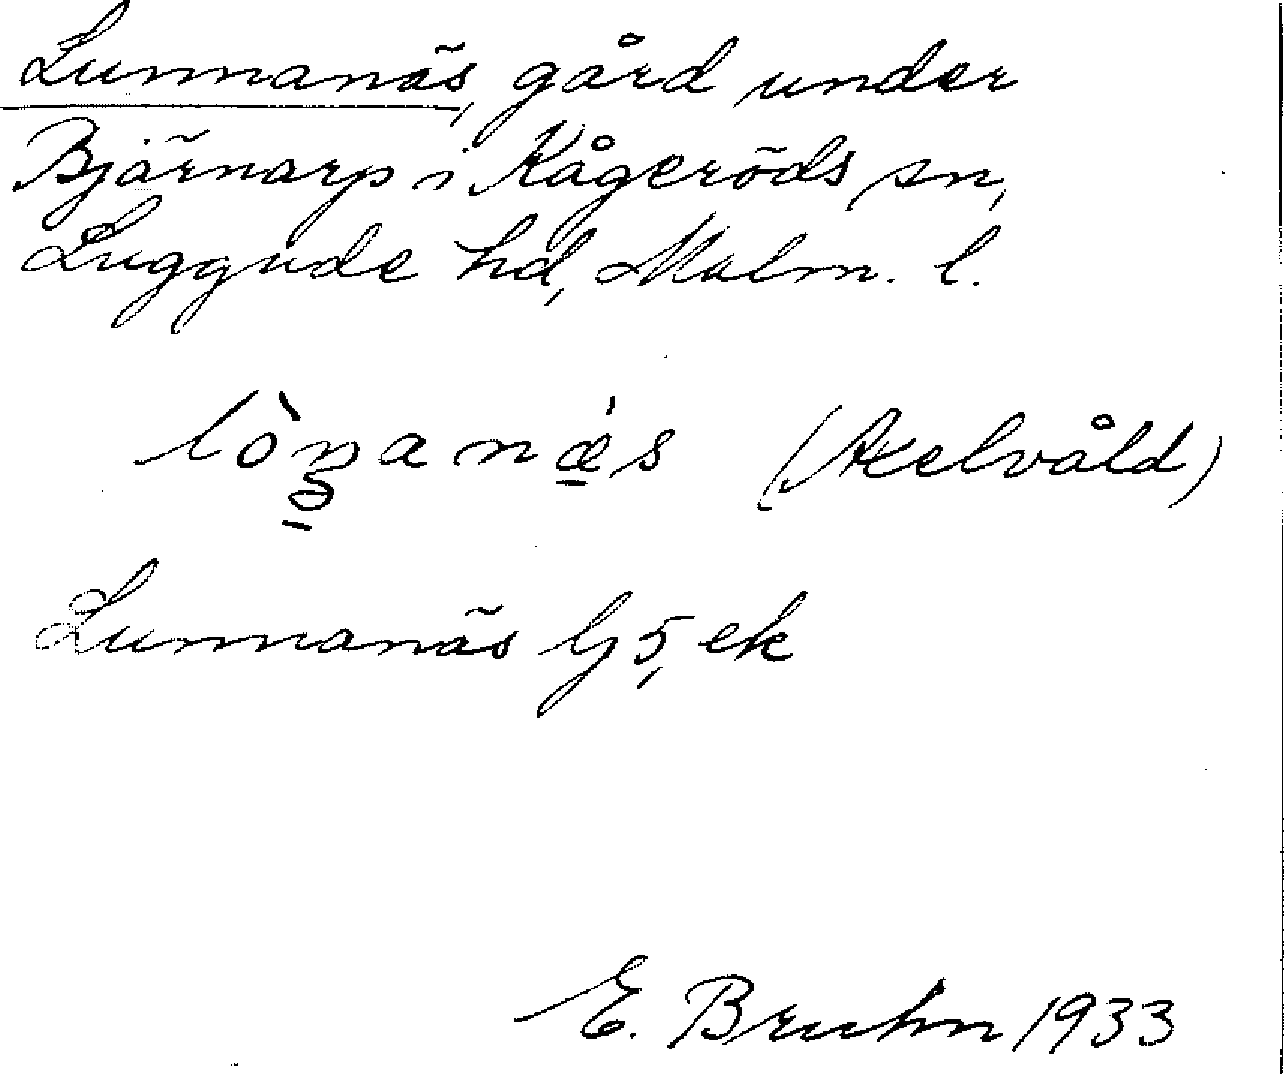 Lunnanäs, gård under
Bjärnarp i Kågeröds sn,
Luggude hd, Malm. l.
(Axelvåld)
Lunnanäs Gj 5, ek
E. Bruhn 1933